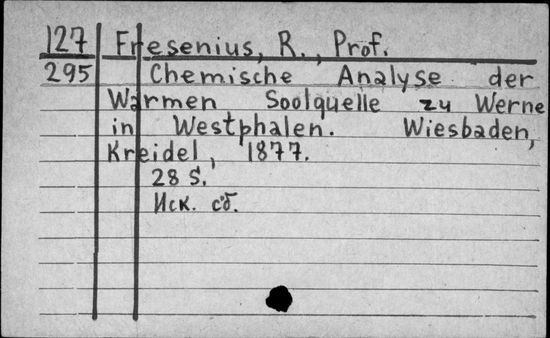 127 Fresenius, R., Prof.
295 Chemische Analyse der
Warmen Soolquelle zu Werne
in Westphalen. Wiesbaden,
Kreidel, 1877.
28 S.
Иск. сб.